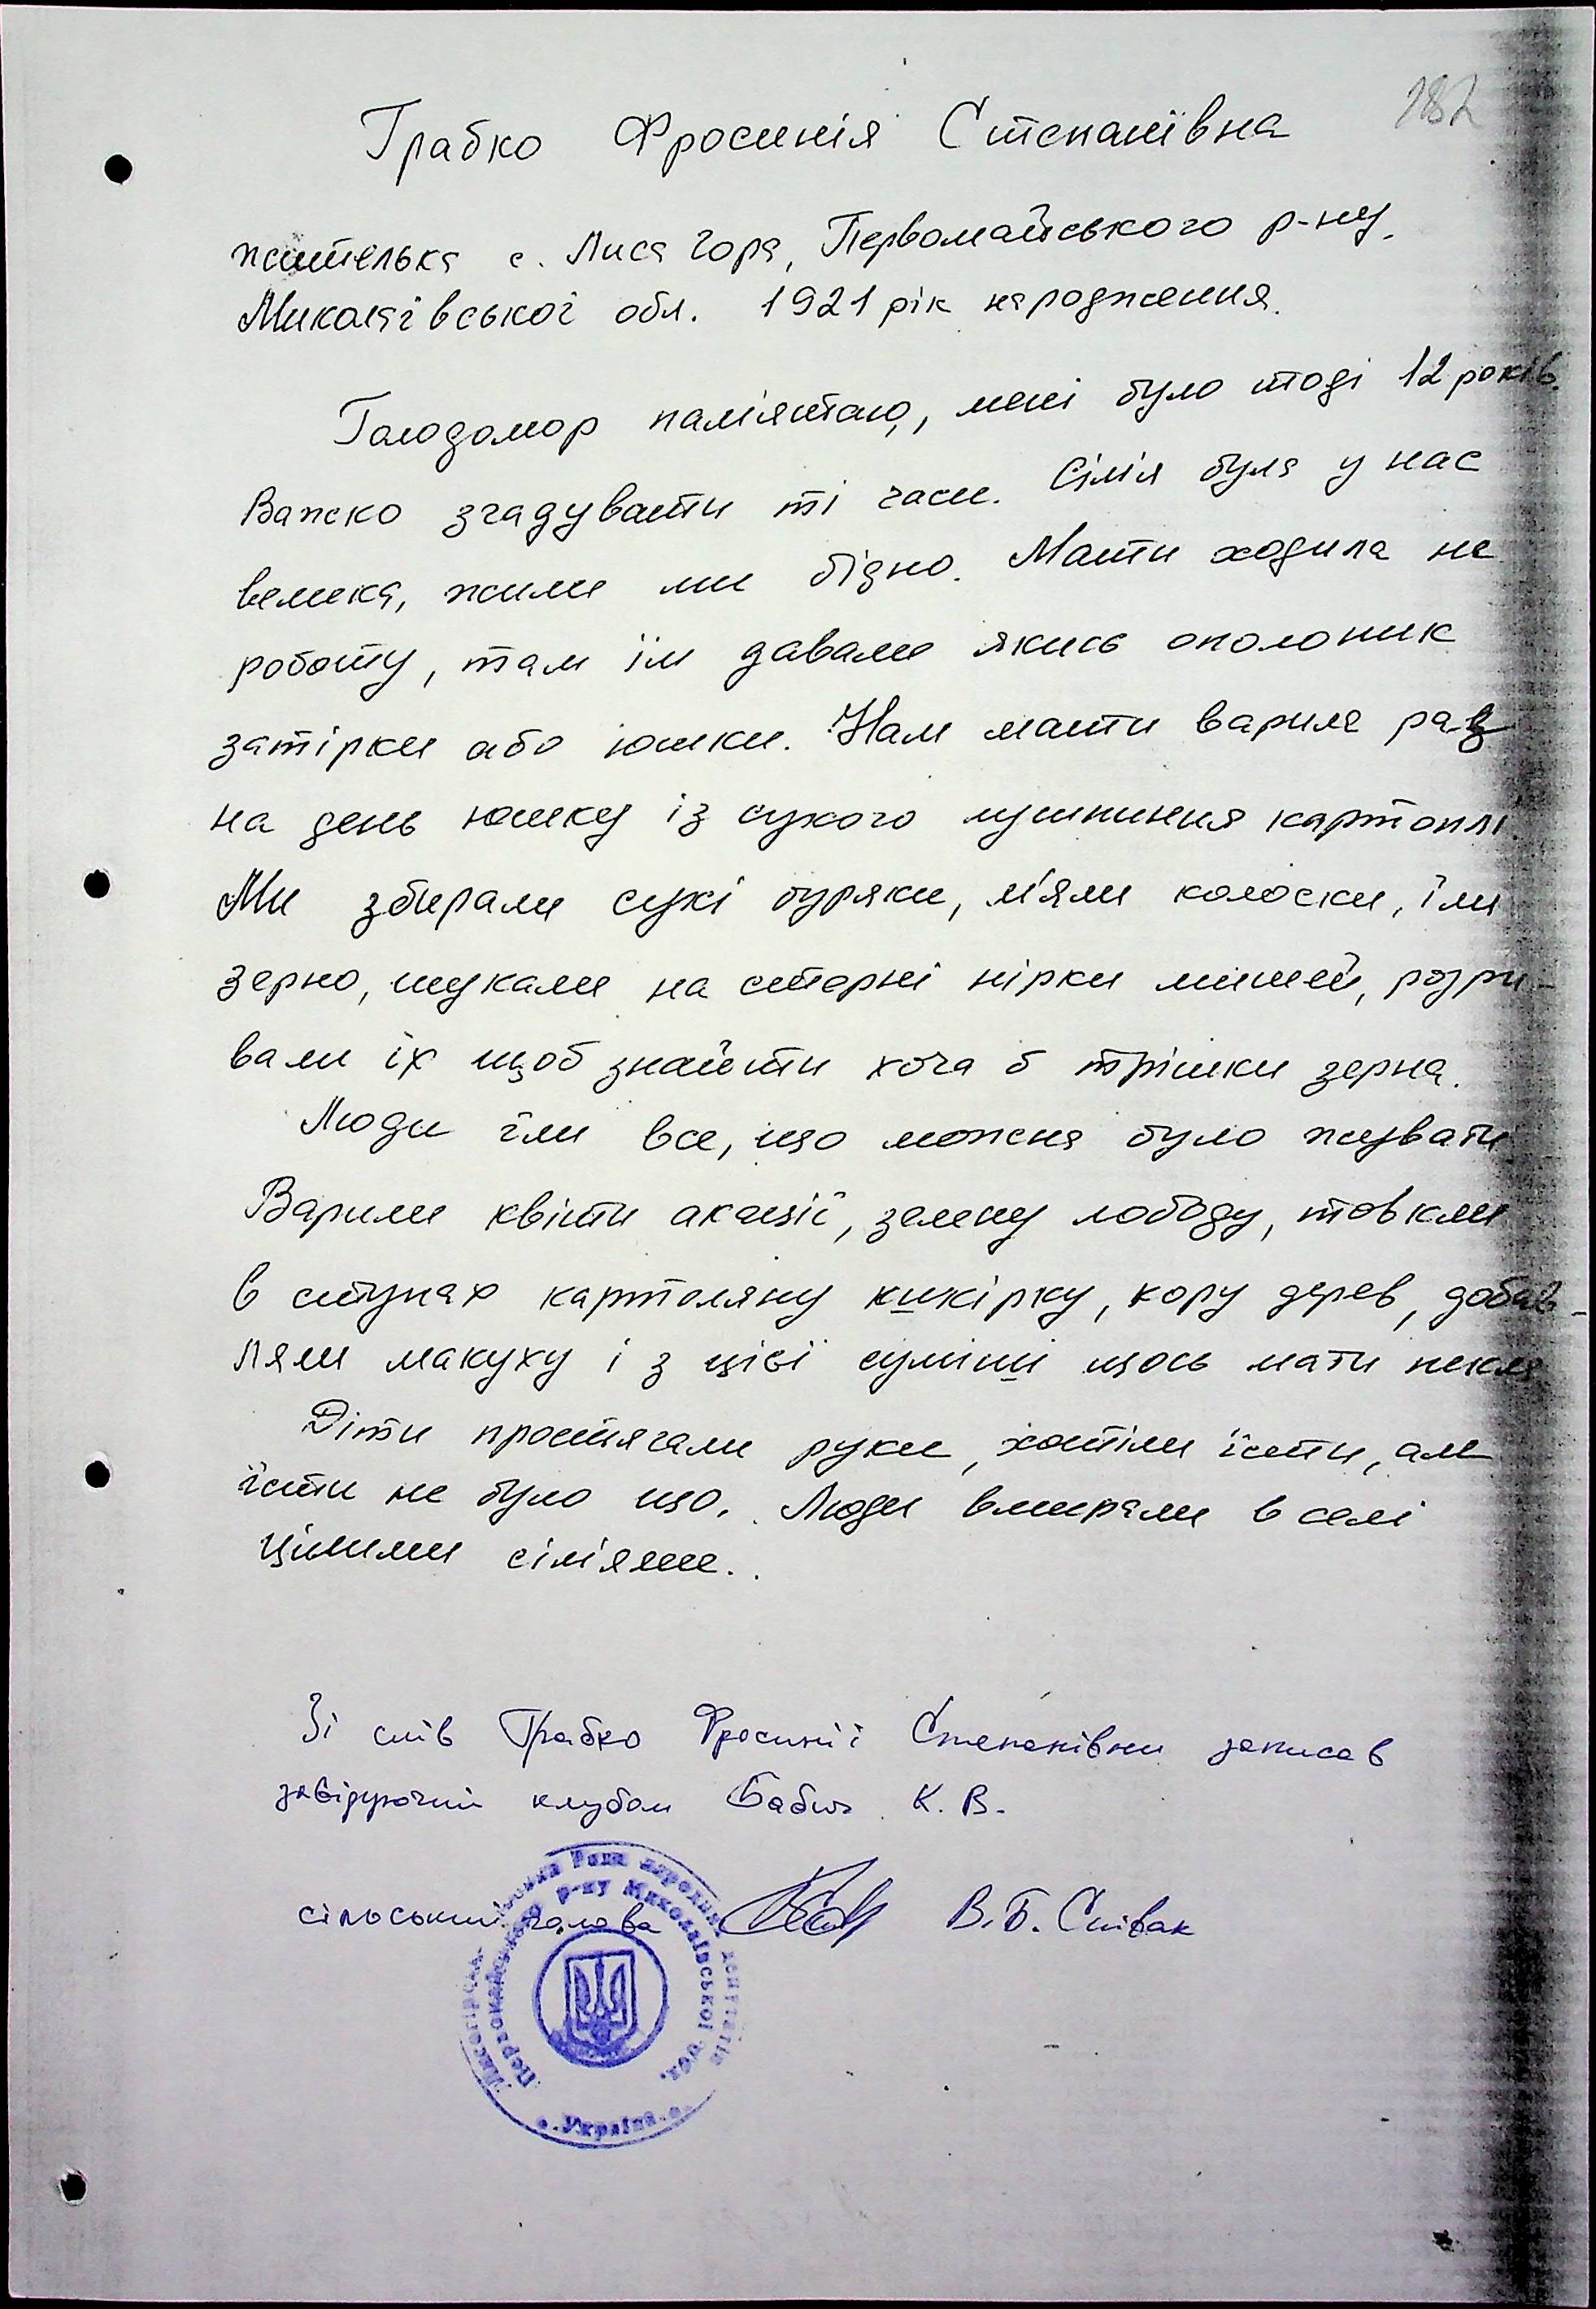 182
Грабко Фросинія Степанівна
жителька с. Лиса Гора, Первомайського р-ну,
Миколаївської обл. 1921 рік народження.
Голодомор пам'ятаю, мені було тоді 12 років.
Важко згадувати ті часи. Сім'я була у нас
велика, жили ми бідно. Мати ходила на
роботу, там їм давали якись ополоник
затірки або юшки. Нам мати варила раз
на день юшку із сухого лушпиння картоплі
Ми збирали сухі буряки, м'яли колоски, їли
зерно, шукали на стерні нірки мишей, розри-
вали їх щоб знайти хоча б трішки зерна.
Люди їли все, що можна було жувати
Варили квіти акації, зелену лободу, товкли
в ступах картопляну кижірку, кору дерев, добав-
ляли макуху і з цієї суміші щось мати пекла
Діти простягали руки, хотіли їсти, але
їсти не було що. Люди вмирали в селі
цілими сім'ями..
Зі слів Грабко Фросинії Степанівни записав
завідуючий клубом Бабич К. В.
сільський голова В.Б. Співак
Лисогірська сільська Рада народних депутатів
Первомайського р-ну Миколаївської обл.
Україна